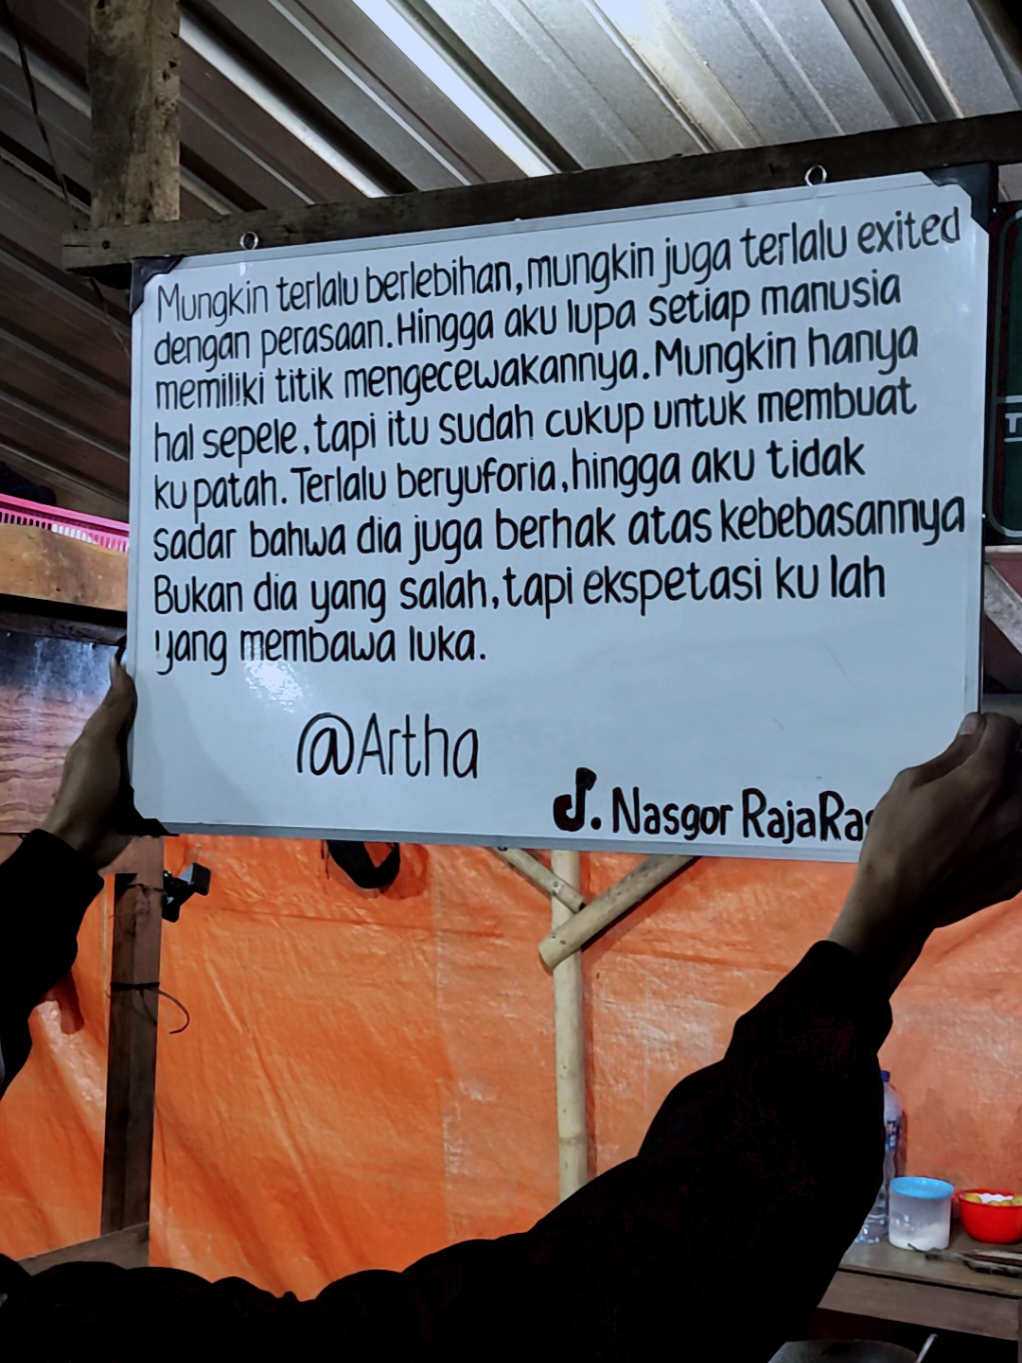 Mungkin terlalu berlebihan, mungkin juga terlalu exited
dengan perasaan. Hingga aku lupa setiap manusia
memiliki titik mengecewakannya. Mungkin hanya
hal sepele, tapi itu sudah cukup untuk membuat
ku patah. Terlalu beryuforia, hingga aku tidak
sadar bahwa dia juga berhak atas kebebasannya
Bukan dia yang salah, tapi ekspetasi ku lah
yang membawa luka.
@Artha
Nasgor Raja